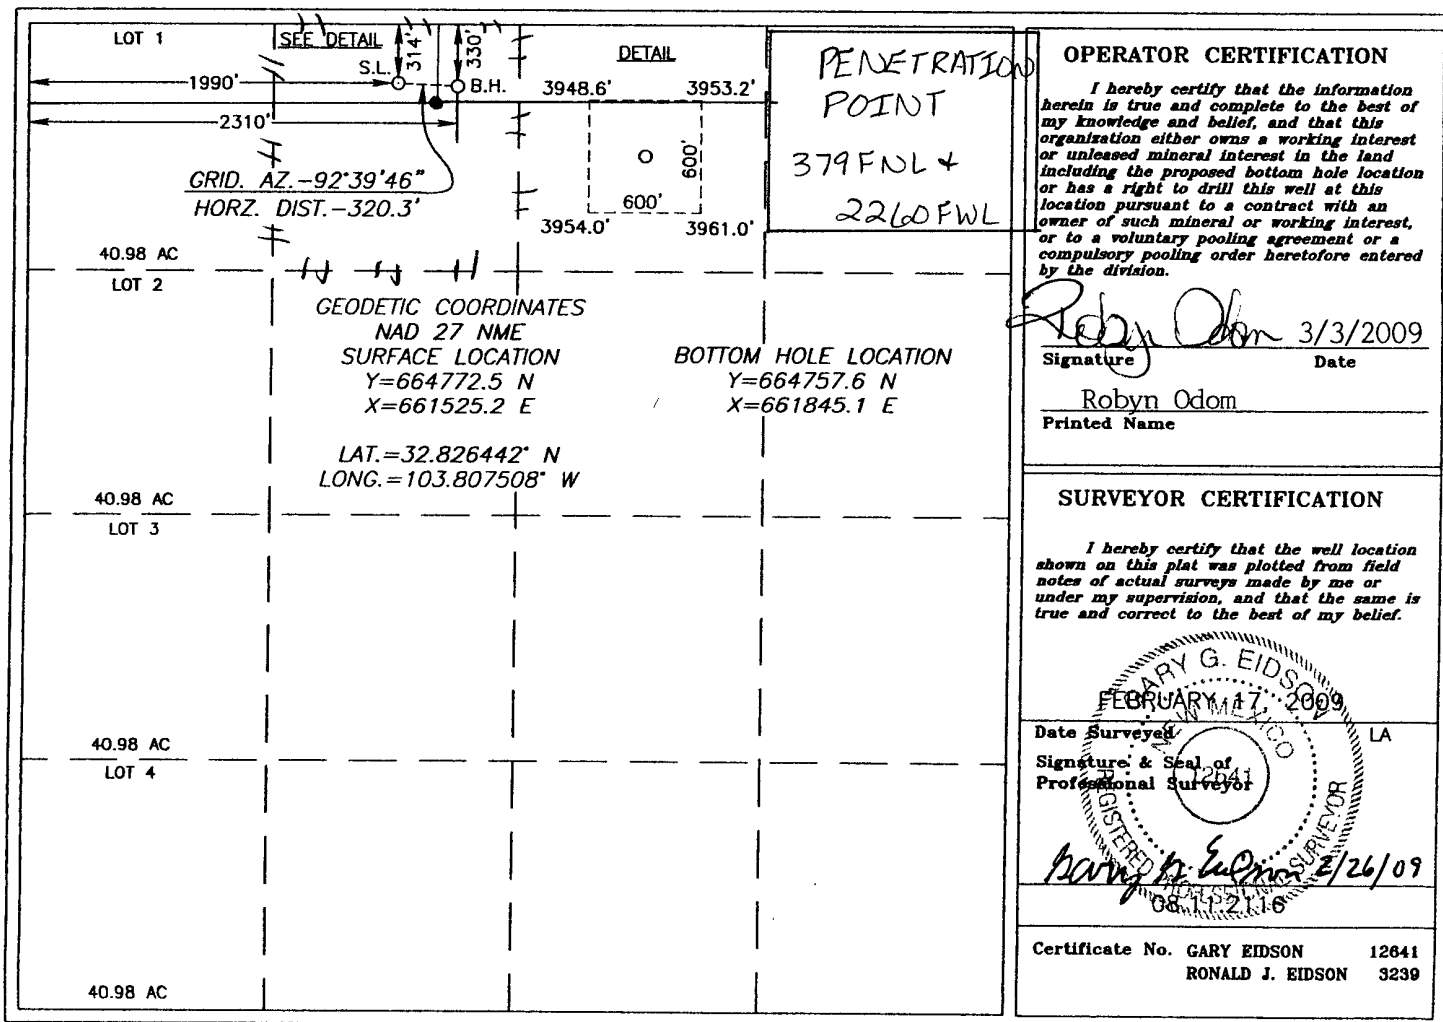 LOT 1
SEE DETAIL
314'
330'
S.L.
1990'
B.H.
2310'
GRID. AZ.-92°39'46"
HORZ. DIST.-320.3'
DETAIL
3948.6' 3953.2'
600'
600'
3954.0' 3961.0'
PENETRATION
POINT
379 FNL +
2260 FWL
40.98 AC
LOT 2
GEODETIC COORDINATES
NAD 27 NME
SURFACE LOCATION
Y=664772.5 N
X=661525.2 E
LAT.=32.826442° N
LONG.=103.807508° W
BOTTOM HOLE LOCATION
Y=664757.6 N
X=661845.1 E
40.98 AC
LOT 3
40.98 AC
LOT 4
40.98 AC
OPERATOR CERTIFICATION
I hereby certify that the information
herein is true and complete to the best of
my knowledge and belief, and that this
organization either owns a working interest
or unleased mineral interest in the land
including the proposed bottom hole location
or has a right to drill this well at this
location pursuant to a contract with an
owner of such mineral or working interest,
or to a voluntary pooling agreement or a
compulsory pooling order heretofore entered
by the division.
Robyn Odom 3/3/2009
Signature Date
Robyn Odom
Printed Name
SURVEYOR CERTIFICATION
I hereby certify that the well location
shown on this plat was plotted from field
notes of actual surveys made by me or
under my supervision, and that the same is
true and correct to the best of my belief.
GARY G. EIDSON
FEBRUARY 17, 2009
NEW MEXICO
Date Surveyed LA
Signature & Seal of
Professional Surveyor
12641
REGISTERED PROFESSIONAL SURVEYOR
Gary G. Eidson 2/26/09
08.11.2116
Certificate No. GARY EIDSON 12641
RONALD J. EIDSON 3239